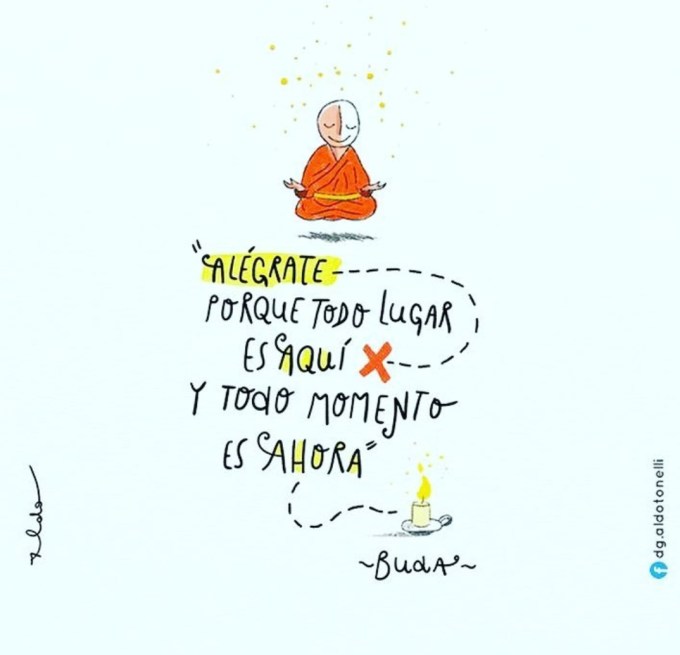 "ALÉGRATE
PORQUE TODO LUGAR
ES AQUÍ
Y TODO MOMENTO
ES AHORA"
~BUDA~
Aldo
dg.aldotonelli